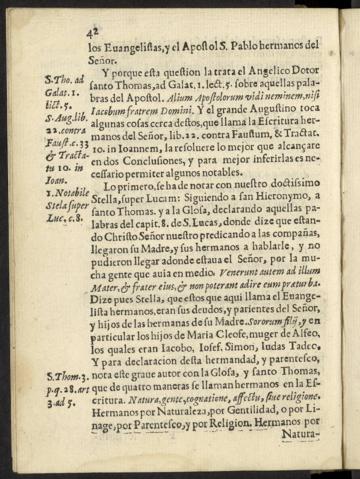 42
los Euangelistas, y el Apostol S. Pablo hermanos del
Señor.
Y porque esta question la trata el Angelico Dotor
santo Thomas, ad Galat. 1. lect. 5. sobre aquellas pala-
bras del Apostol. Alium Apostolorum vidi neminem, nisi
Iacobum fratrem Domini. Y el grande Augustino toca
algunas cosas cerca destos, que llama la Escritura her-
manos del Señor, lib. 22. contra Faustum, & Tractat.
10. in Ioannem, la resoluere lo mejor que alcançare
en dos Conclusiones, y para mejor inferirlas es ne-
cessario permiter algunos notables.
Lo primero, se ha de notar con nuestro doctissimo
Stella, super Lucam: Siguiendo a san Hieronymo, a
santo Thomas. y a la Glosa, declarando aquellas pa-
labras del capit. 8. de S. Lucas, donde dize que estan-
do Christo Señor nuestro predicando a las compañas,
llegaron su Madre, y sus hermanos a hablarle, y no
pudieron llegar adonde estaua el Señor, por la mu-
cha gente que auia en medio. Venerunt autem ad illum
Mater, & frater eius, & non poterant adire eum præ turba.
Dize pues Stella, que estos que aqui llama el Euange-
lista hermanos, eran sus deudos, y parientes del Señor,
y hijos de las hermanas de su Madre. Sororum filij, y en
particular los hijos de Maria Cleofe, muger de Alfeo,
los quales eran Iacobo, Iosef. Simon, Iudas Tadeo.
Y para declaracion desta hermandad, y parentesco,
nota este graue autor con la Glosa, y santo Thomas,
que de quatro maneras se llaman hermanos en la Es-
critura. Natura, gente, cognatione, affectu, siue religione.
Hermanos por Naturaleza, por Gentilidad, o por Li-
nage, por Parentesco, y por Religion. Hermanos por
Natura-
S. Tho. ad
Galat. 1.
lict. 5.
S. Aug. lib.
22. contra
Faust. c. 33
& Tracta-
tu 10. in
Ioan.
1. Notabile
Stela super
Luc, c. 8.
S. Thom. 3.
p. q. 28. art
3. ad 5.